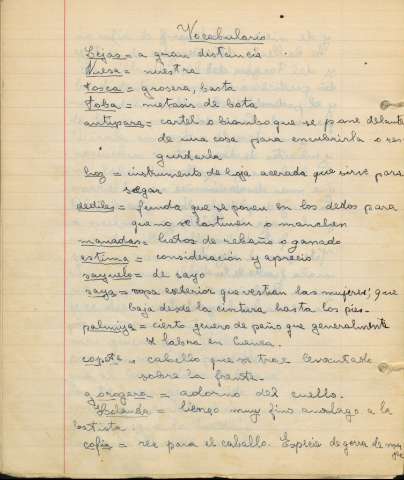 Vocabulario
Lejas = a gran distancia
Nuesa = nuestra
tosca = grosera, basta
toba = metasis de bota
antipara = cartel o biombo que se pone delante
de una cosa para encubrirla o res
guardarla
hoz = instrumento de hoja acerada que sirve para
segar
dediles = funda que se ponen en los dedos para
que no se lastimen o manchen
manadas = hatos de rebaño o ganado
estima = consideración y aprecio
sayuelo = de sayo
saya = ropa exterior que vestian las mujeres, que
baja desde la cintura hasta los pies.
palmilla = cierto genero de paño que generalmente
se labra en Cuenca.
copete = cabello que se trae levantado
sobre la frente.
gorguera = adorno del cuello.
Holanda = lienzo muy fino a la
cofia = red para el cabello. Especie de gorra de